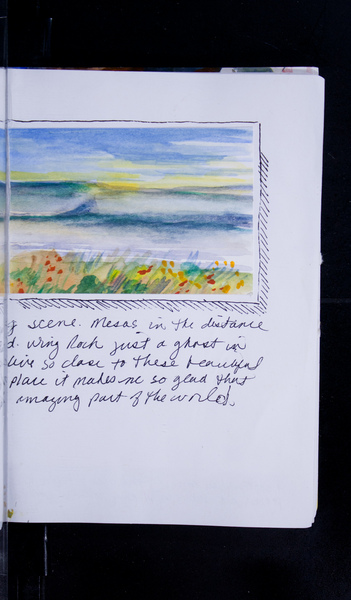 scene. Mesas in the distance
d. Wing Rock just a ghost in
live so close to these beautiful
place it makes me so glad that
amazing part of the world.